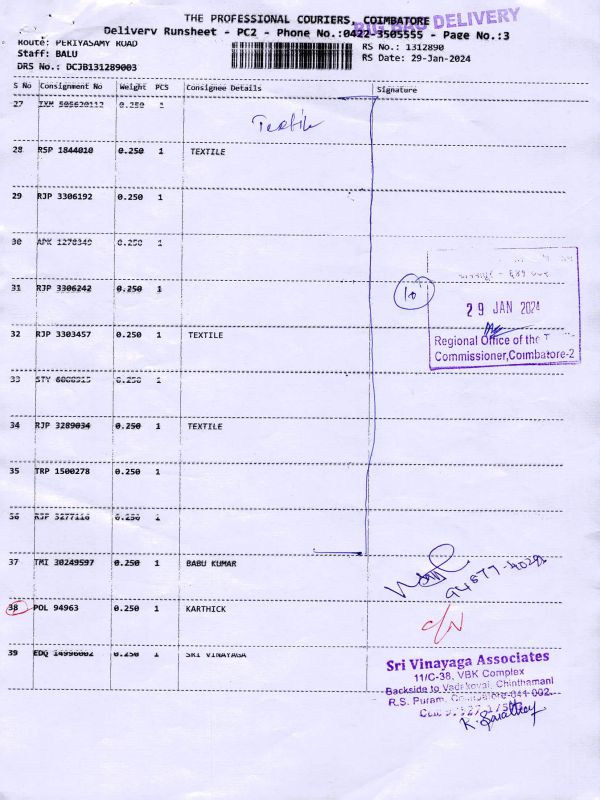 THE PROFESSIONAL COURIERS, COIMBATORE
BIG BAG DELIVERY
Delivery Runsheet - PC2 - Phone No.:0422-3505555 - Page No.:3
Route: PERIYASAMY ROAD
Staff: BALU
DRS No.: DCJB131289003
RS No.: 1312890
RS Date: 29-Jan-2024
S No Consignment No Weight PCS Consignee Details Signature
27 0.250 1
Textile
28 RSP 1844010 0.250 1 TEXTILE
29 RJP 3306192 0.250 1
30 APK 1278349 0.250 1
31 RJP 3306242 0.250 1
10
29 JAN 2024
Regional Office of the
Commissioner, Coimbatore-2
32 RJP 3303457 0.250 1 TEXTILE
33 STY 0.250 1
34 RJP 3289034 0.250 1 TEXTILE
35 TRP 1500278 0.250 1
36 RJP 0.250 1
37 TMI 30249597 0.250 1 BABU KUMAR
38 POL 94963 0.250 1 KARTHICK
39 EDQ 14996002 0.250 1 SRI VINAYAGA
Sri Vinayaga Associates
11/C-38, VBK Complex
Backside to Vadakovai, Chinthamani
R.S. Puram, Coimbatore-641 002.